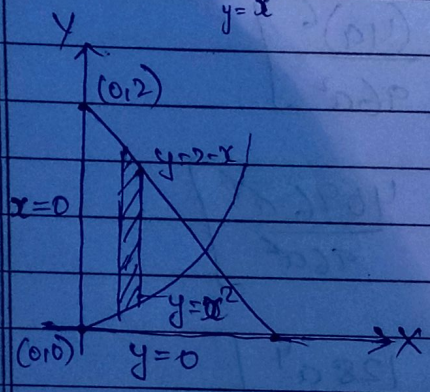 y = x
Y
(0,2)
y=2-x
x=0
y=x²
(0,0)
y=0
X